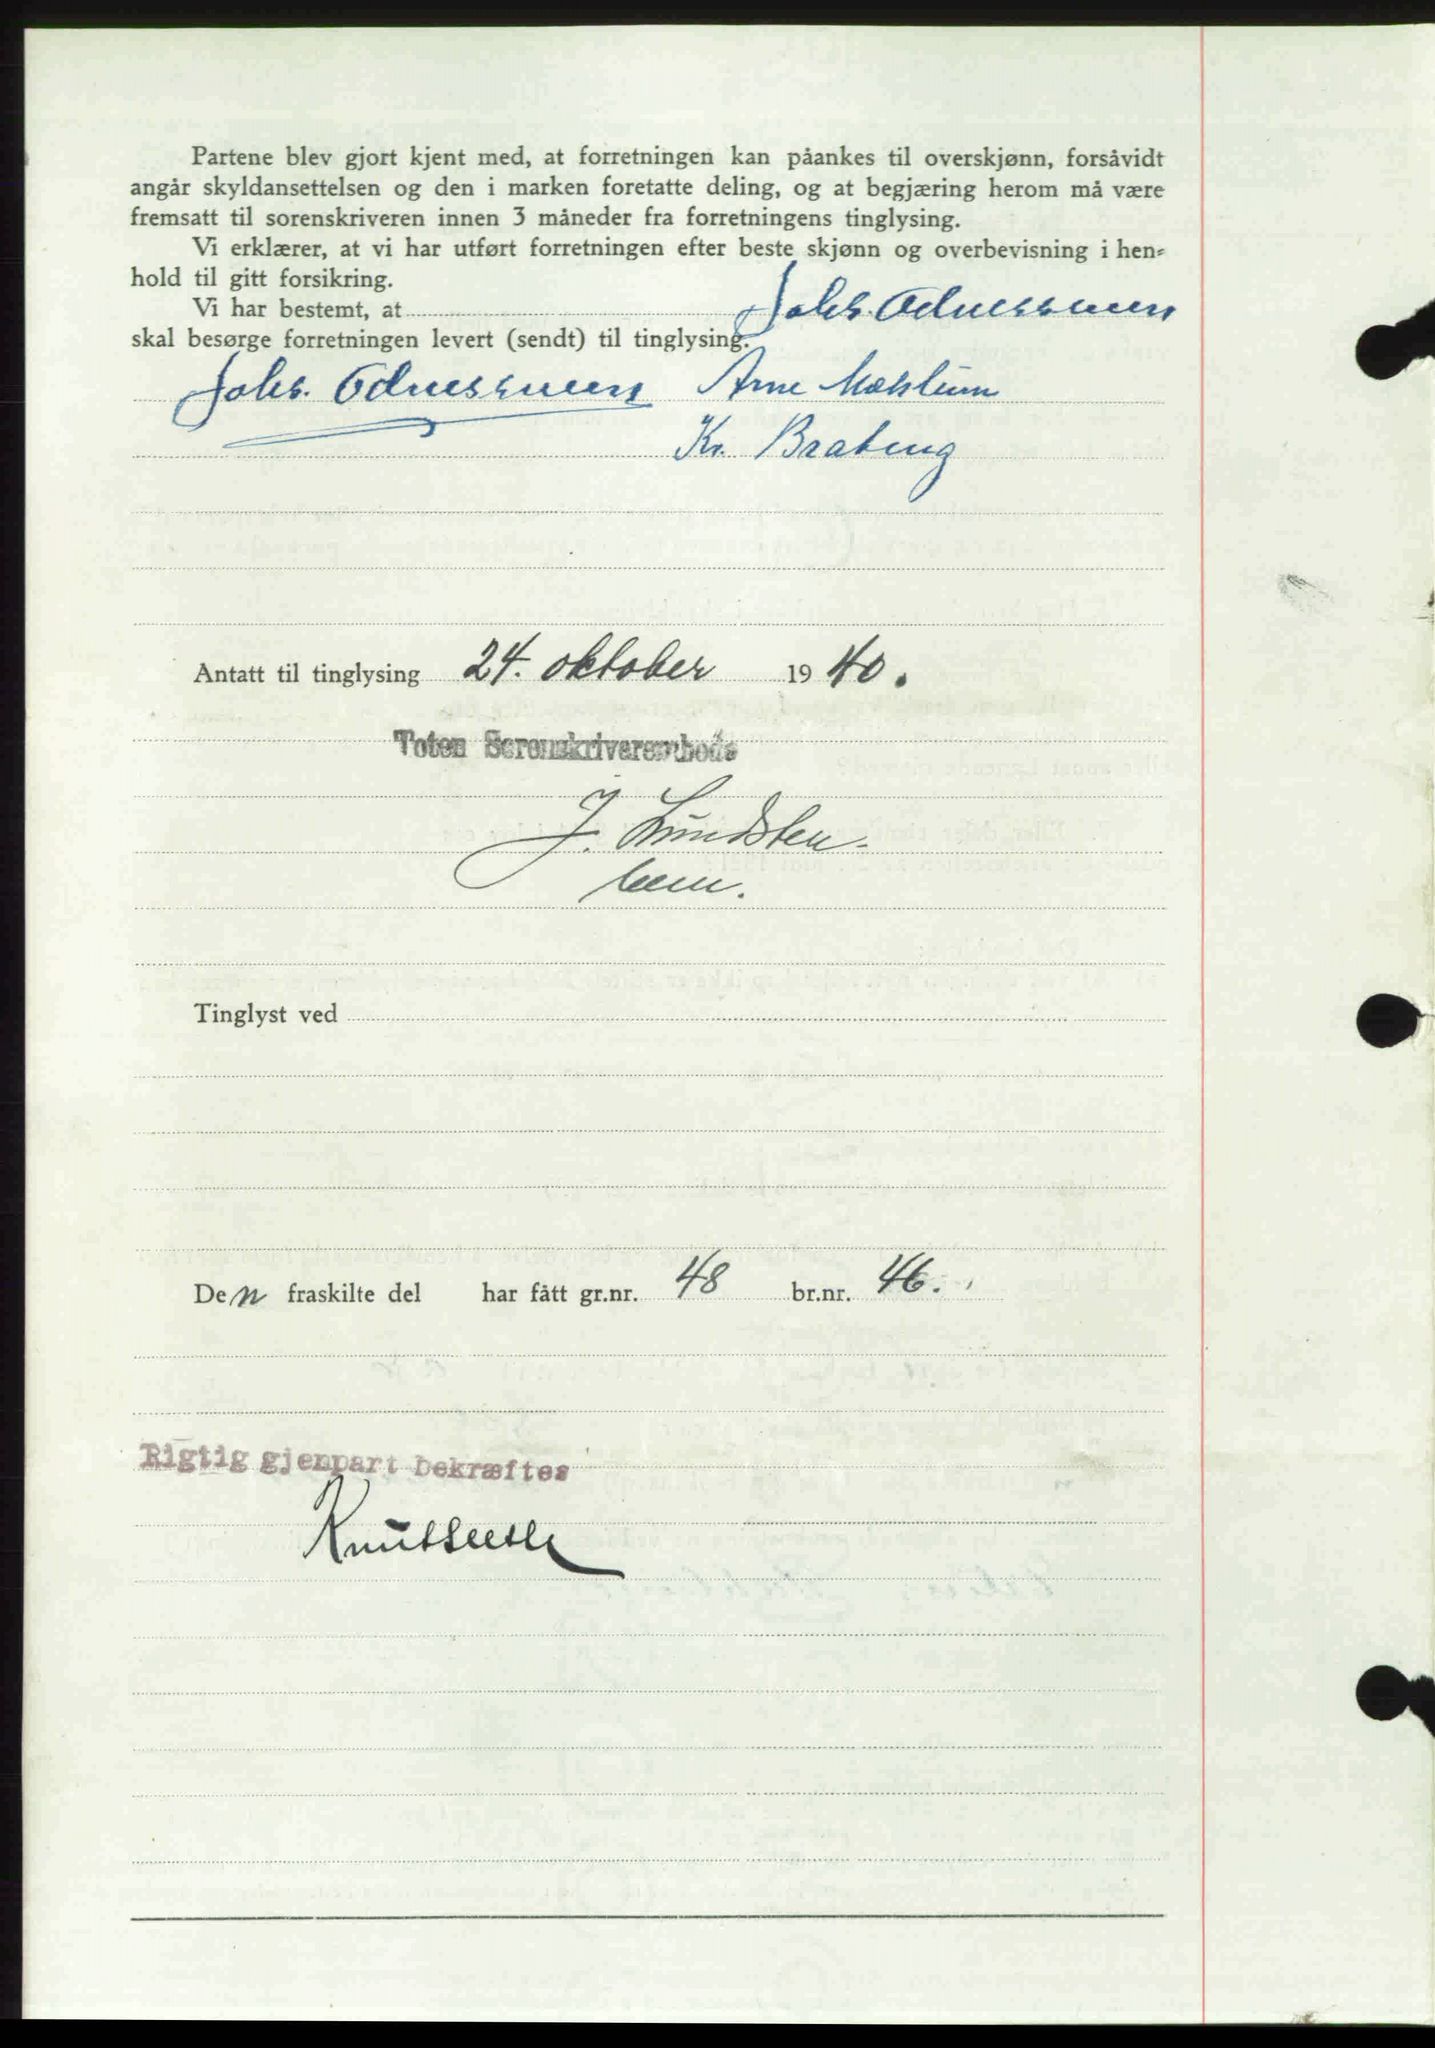 Partene blev gjort kjent med, at forretningen kan påankes til overskjønn, forsåvidt
angår skyldansettelsen og den i marken foretatte deling, og at begjæring herom må være
fremsatt til sorenskriveren innen 3 måneder fra forretningens tinglysing.
Vi erklærer, at vi har utført forretningen efter beste skjønn og overbevisning i hen-
hold til gitt forsikring.
Vi har bestemt, at Johs.
skal besørge forretningen levert (sendt) til tinglysing.
Johs. Arne Mæhlum
Kr. Brateng
Antatt til tinglysing 24. oktober 1940.
Toten Sorenskriverembede
J. Lundsten
Tinglyst ved
Den fraskilte del har fått gr.nr. 48 br.nr. 46.
Rigtig gjenpart bekræftes